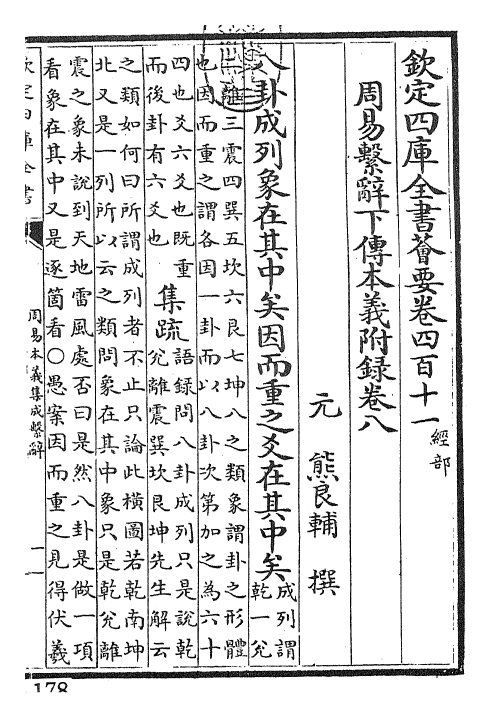 欽定四庫全書薈要卷四百十一 經部
周易繫辭下傳本義附錄卷八
元 熊良輔 撰
八卦成列象在其中矣因而重之爻在其中矣 成列謂乾一兌
二離三震四巽五坎六艮七坤八之類象謂卦之形體
也因而重之謂各因一卦而以八卦次第加之為六十
四也爻六爻也既重而後卦有六爻也 集疏 語錄問八卦成列只是說乾
兌離震巽坎艮坤先生解云之類如何曰所謂成列者不止只論此橫圖若乾南坤
北又是一列所以云之類問象在其中象只是乾兌離
震之象未說到天地雷風處否曰是然八卦是做一項
看象在其中又是逐箇看○愚案因而重之見得伏羲
欽定四庫全書
周易本義集成繫辭
一
178